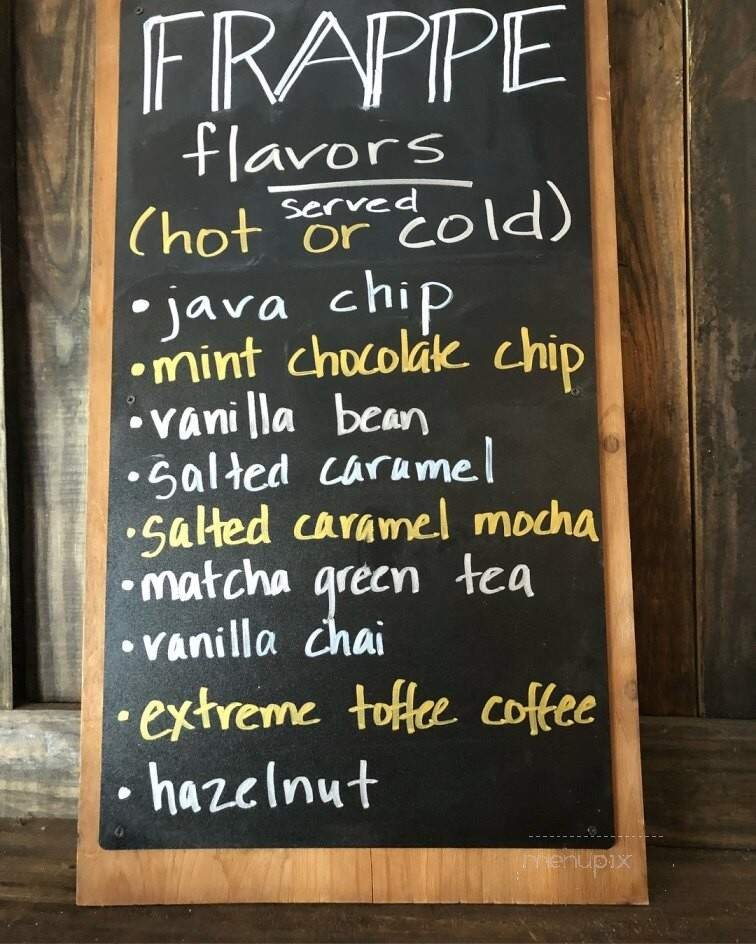 FRAPPE
flavors
served
(hot or cold)
• java chip
• mint chocolate chip
• vanilla bean
• salted caramel
• salted caramel mocha
• matcha green tea
• vanilla chai
• extreme toffee coffee
• hazelnut
menupix